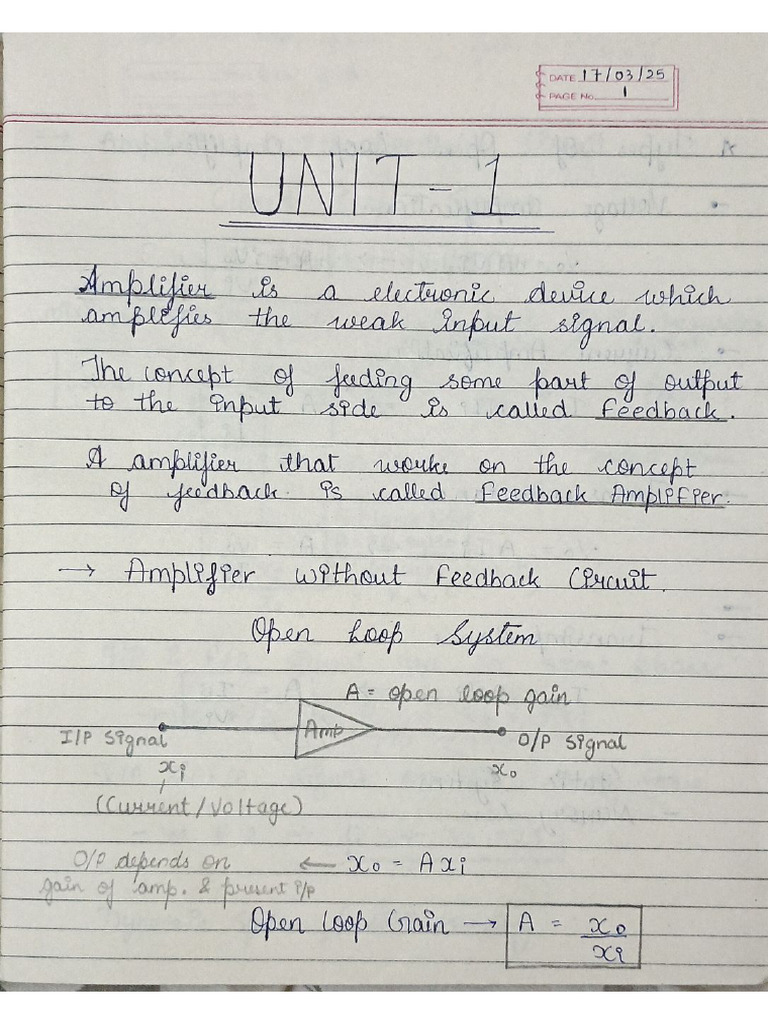 DATE 17/03/25
PAGE No. 1
UNIT-1
Amplifier is a electronic device which
amplifies the weak input signal.
The concept of feeding some part of output
to the input side is called Feedback.
A amplifier that works on the concept
of feedback is called Feedback Amplifier.
→ Amplifier without Feedback Circuit.
Open Loop System
A = open loop gain
I/P Signal
Amp
O/P Signal
xi
xo
(Current/Voltage)
O/P depends on ← xo = Axi
gain of amp. & present i/p
Open Loop Gain → A = xo/xi